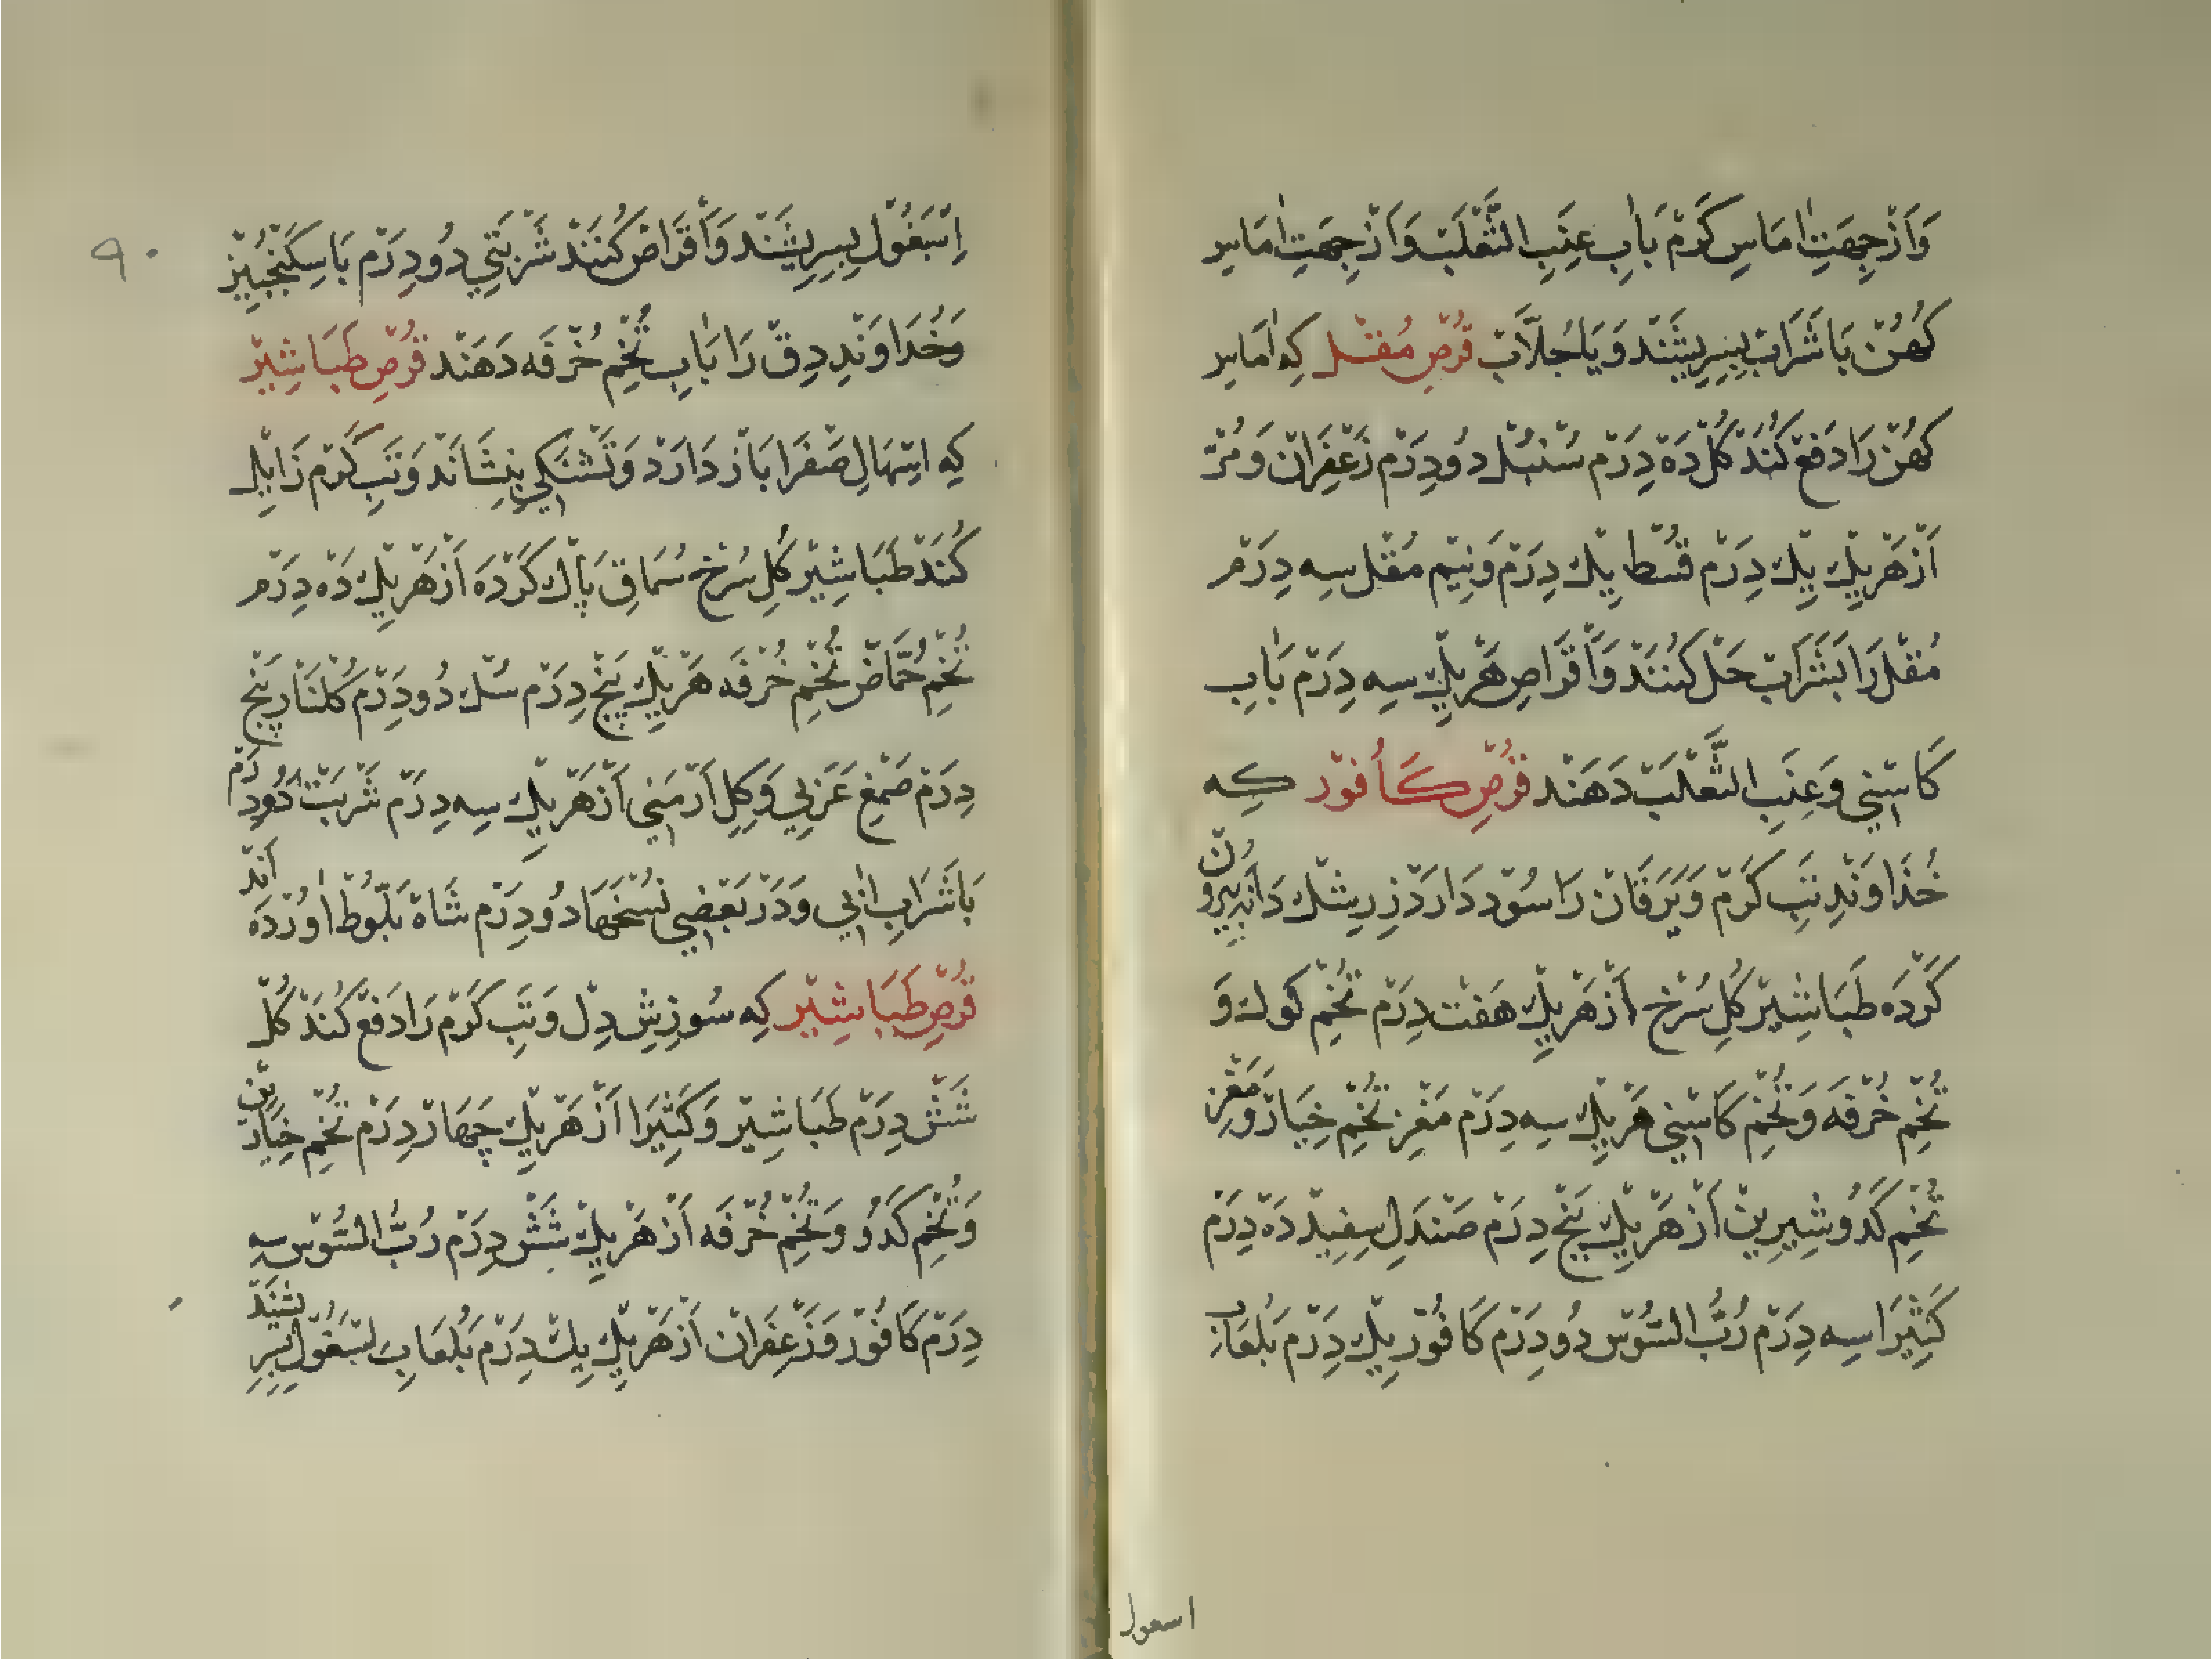 وَاَزْ جِهَتِ اٰمَاسِ كَرْمْ بَاٰبِ عِنَبِ الثَّعْلَبْ وَاَزْ جِهَتِ اٰمَاسِ
كُهُنْ بَا شَرَابْ بِسِرِيشَنْد وَيَا بَجُلَّابْ قُرْصِ مُقْل كِه اٰمَاسِ
كُهُنْ رَا دَفْع كُنَدْ كُلْ دَهْ دِرَمْ سُنْبُل دُو دِرَمْ زَعْفِرَانْ وَمُرّ
اَزْ هَرْ يِكْ يِكْ دِرَمْ قُسْط يِكْ دِرَمْ وَنِيمْ مُقْل سِه دِرَمْ
مُقْل رَا بَشَرَابْ حَلْ كُنَنْد وَاَقْرَاصِ هَرْ يِكْ سِه دِرَمْ بَاٰبِ
كَاسْنِي وَعِنَبِ الثَّعْلَبْ دَهَنْد قُرْصِ كَافُوْر كِه
خُدَاوَنْدِ تَبِ كَرْمْ وَيَرَقَانْ رَا سُوْد دَارَدْ زِرِشْكْ دَانَه بِيرُونْ
كَرْدَه طَبَاشِيْر كُلِ سُرْخ اَزْ هَرْ يِكْ هَفْت دِرَمْ تُخْمِ كُوك وَ
تُخْمِ خُرْفَه وَتُخْمِ كَاسْنِي هَرْ يِكْ سِه دِرَمْ مَغْزِ تُخْمِ خِيَارْ وَمَغْزِ
تُخْمِ كَدُو شِيرِينْ اَزْ هَرْ يِكْ پَنْج دِرَمْ صَنْدَلِ سِفِيدْ دَهْ دِرَمْ
كَثِيْرَا سِه دِرَمْ رُبُّ السُّوْسْ دُو دِرَمْ كَافُوْر يِكْ دِرَمْ بَلُعَابِ
اسعول
۹۰
اِسْبَغُوْل بِسِرِيشَنْد وَاَقْرَاصْ كُنَنْدْ شَرْبَتِي دُو دِرَمْ بَا سِكَنْجُبِيْن
وَخُدَاوَنْدِ دِقْ رَا بَاٰبِ تُخْمِ خُرْفَه دَهَنْد قُرْصِ طَبَاشِيْر
كِه اِسْهَالِ صَفْرَا بَازْ دَارَدْ وَتَشْنَكِي بِنِشَانَدْ وَتَبِ كَرْم زَايِلْ
كُنَدْ طَبَاشِيْر كُلِ سُرْخ سُمَاقِ پَاكْ كَرْدَه اَزْ هَرْ يِكْ دَهْ دِرَمْ
تُخْمِ حُمَّاضْ تُخْمِ خُرْفَه هَرْ يِكْ پَنْج دِرَمْ سُكْ دُو دِرَمْ كُلْنَارْ پَنْج
دِرَمْ صَمْغِ عَرَبِي وَكِلِ اَرْمَنِي اَزْ هَرْ يِكْ سِه دِرَمْ شَرْبَتْ دُو دِرَمْ
بَا شَرَابِ اٰبِي وَدَرْ بَعْضِي نُسْخَهَا دُو دِرَمْ شَاهْ بَلُّوطْ اٰوُرْدَه اَنْد
قُرْصِ طَبَاشِيْر كِه سُوزِشِ دِلْ وَتَبِ كَرْمْ رَا دَفْع كُنَدْ كُلْ
شَشْ دِرَمْ طَبَاشِيْر وَكَثِيْرَا اَزْ هَرْ يِكْ چَهَارْ دِرَمْ تُخْمِ خِيَارِيْن
وَتُخْمِ كَدُو وَتُخْمِ خُرْفَه اَزْ هَرْ يِكْ شَشْ دِرَمْ رُبُّ السُّوْسْ سِه
دِرَمْ كَافُوْر وَزَعْفِرَانْ اَزْ هَرْ يِكْ يِكْ دِرَمْ بَلُعَابِ اسْبَغُوْل بِسِرِيشَنْد